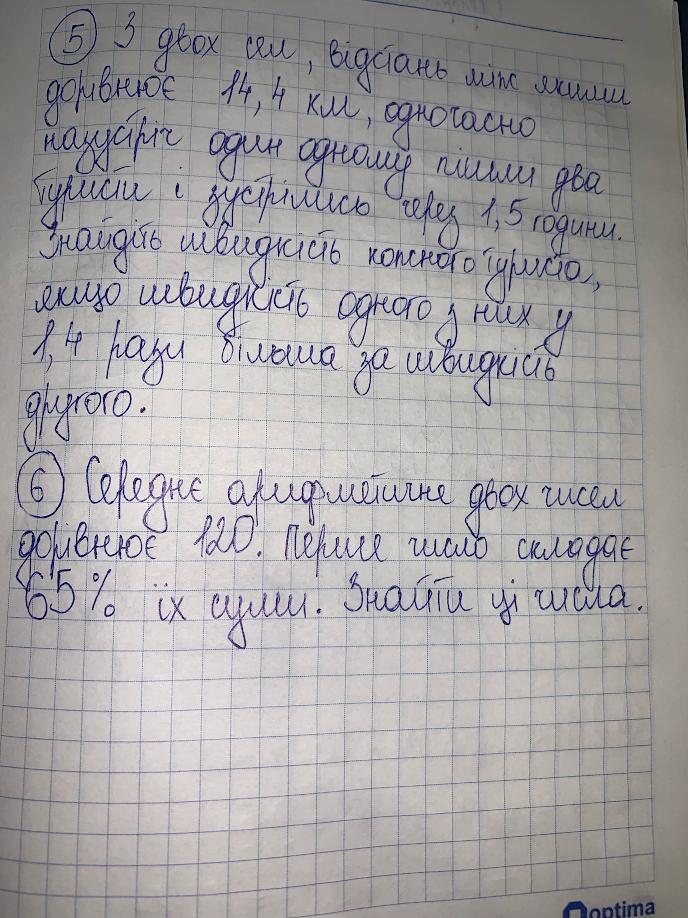 5 З двох сел, відстань між якими
дорівнює 14,4 км, одночасно
назустріч один одному пішли два
туристи і зустрілись через 1,5 години.
Знайдіть швидкість кожного туриста,
якщо швидкість одного з них у
1,4 рази більша за швидкість
другого.
6 Середнє арифметичне двох чисел
дорівнює 120. Перше число складає
65% їх суми. Знайти ці числа.
optima